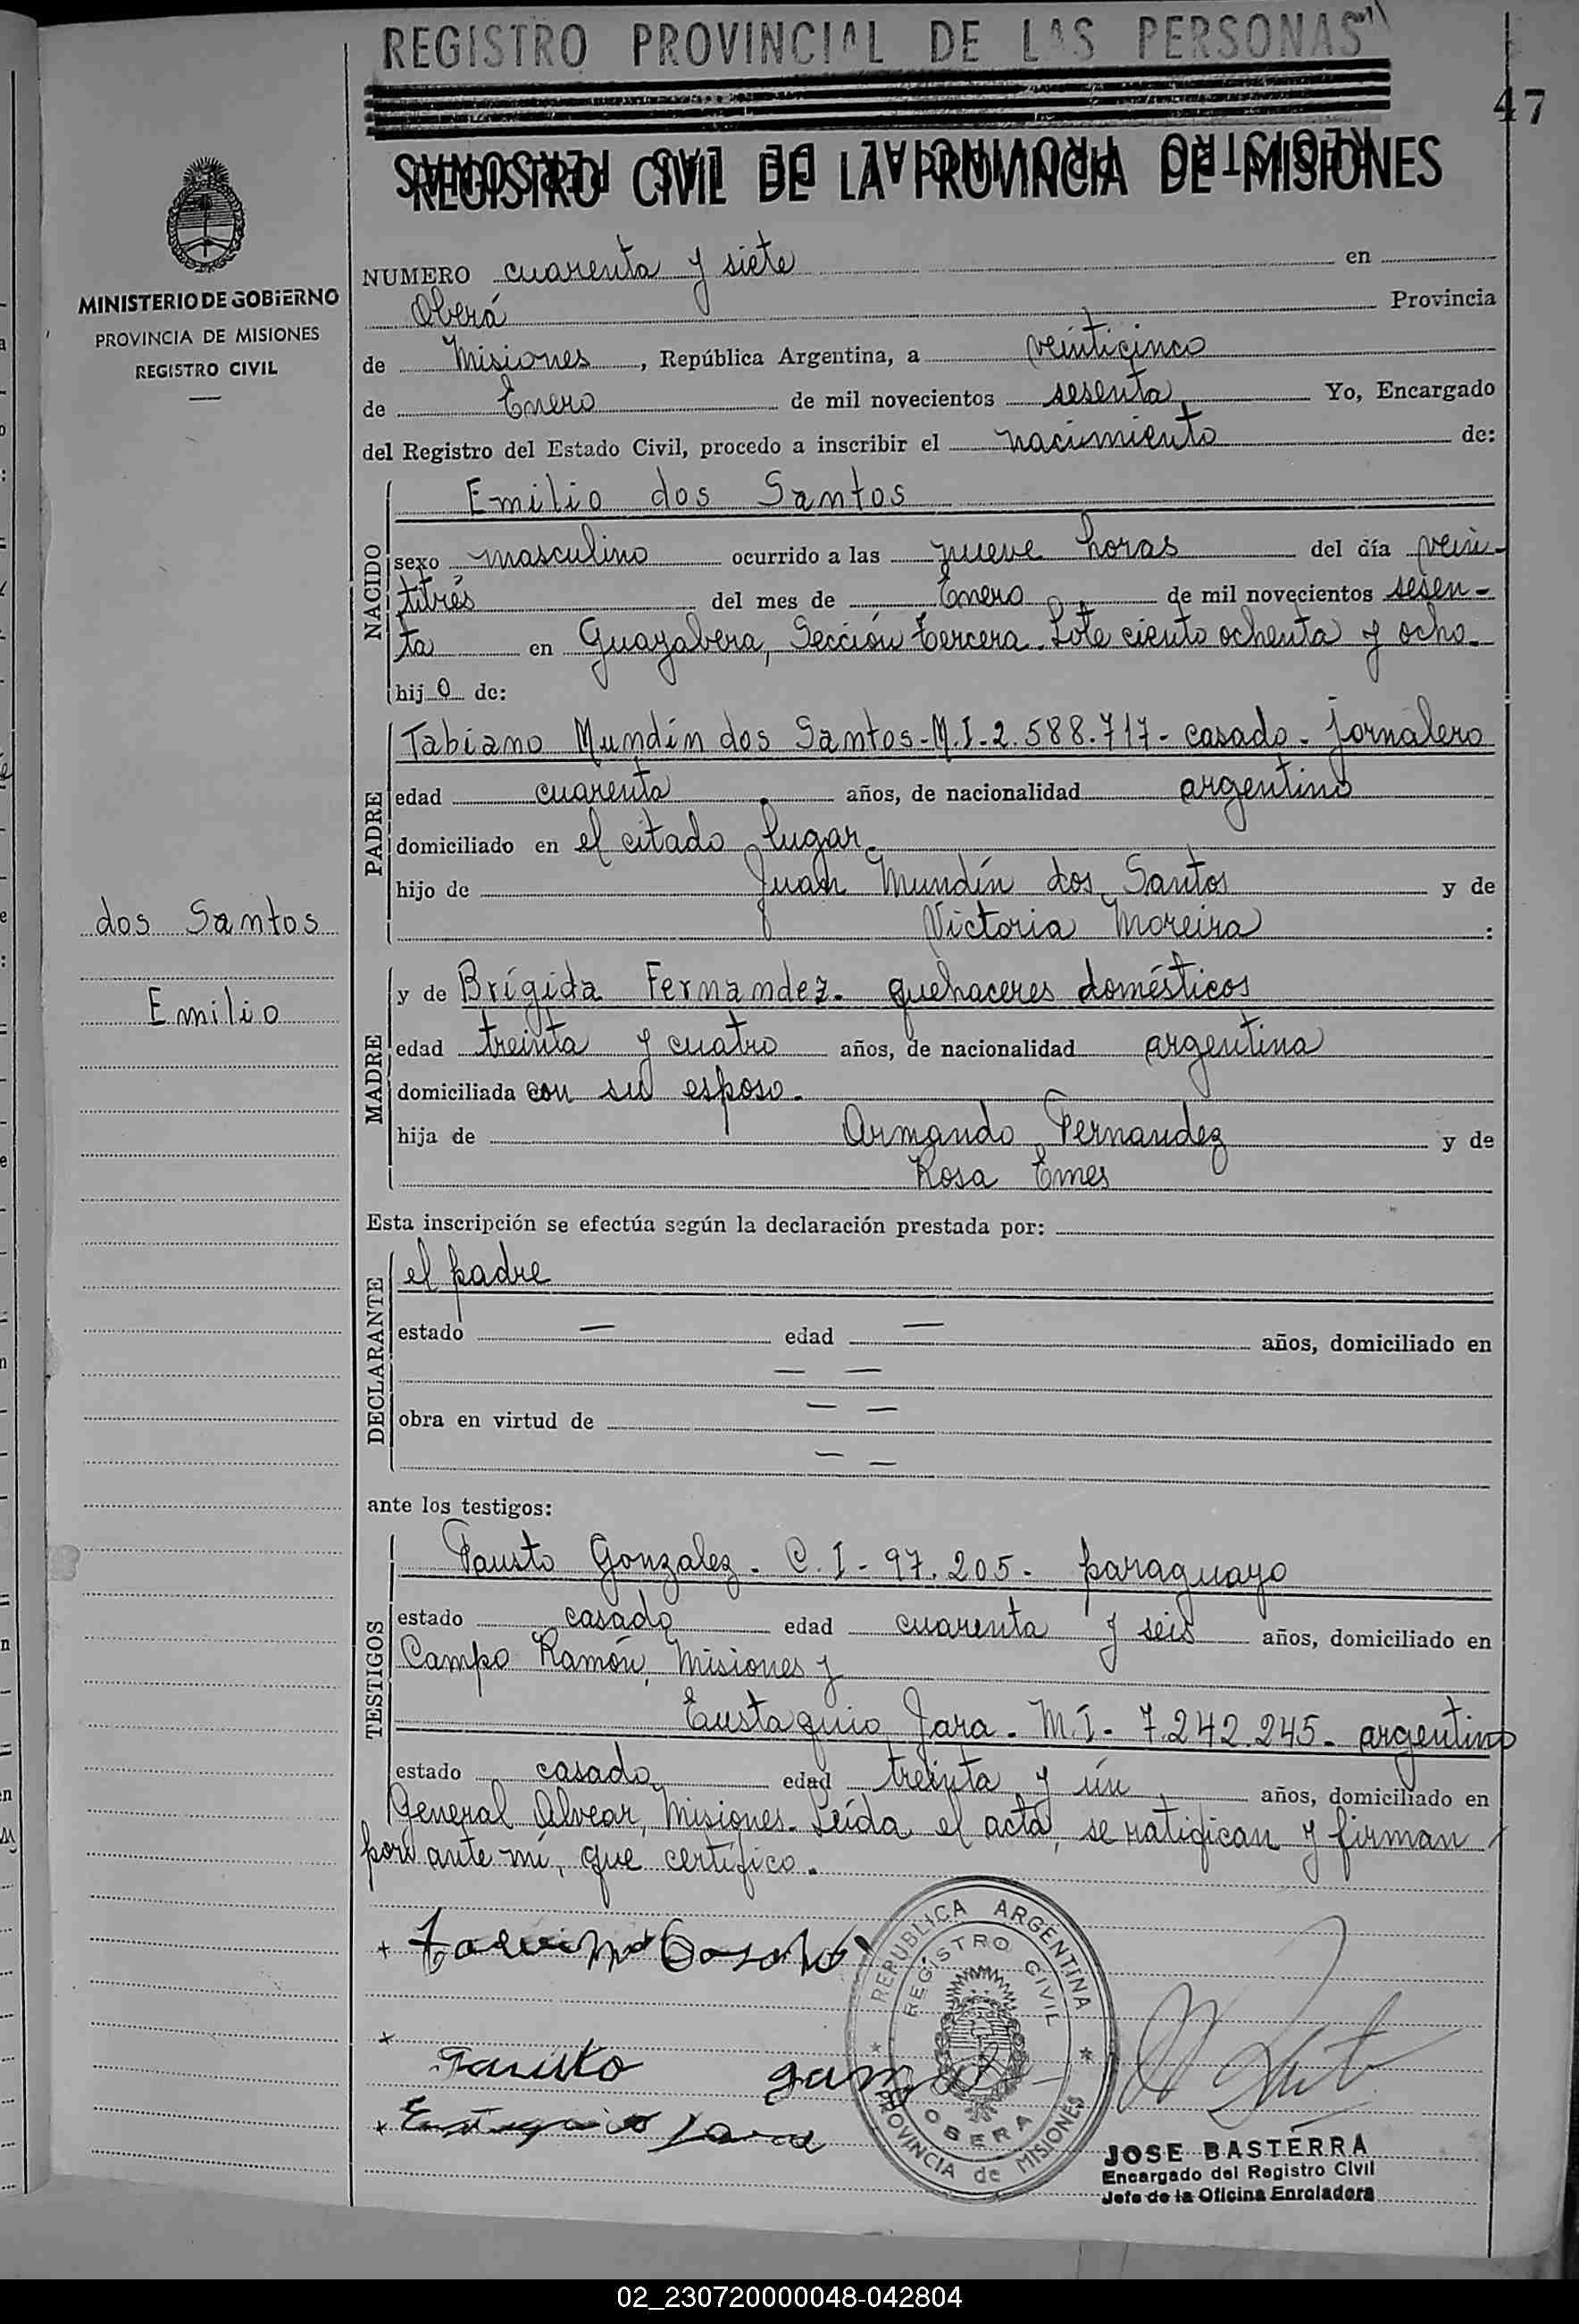 REGISTRO PROVINCIAL DE LAS PERSONAS
47
REGISTRO CIVIL DE LA PROVINCIA DE MISIONES
MINISTERIO DE GOBIERNO
PROVINCIA DE MISIONES
REGISTRO CIVIL
dos Santos
Emilio
NUMERO cuarenta y siete en
Oberá Provincia
de Misiones, República Argentina, a veinticinco
de Enero de mil novecientos sesenta Yo, Encargado
del Registro del Estado Civil, procedo a inscribir el nacimiento de:
NACIDO
Emilio dos Santos
sexo masculino ocurrido a las nueve horas del día vein-
titrés del mes de Enero de mil novecientos sesen-
ta en Guayabera, Sección tercera. Lote ciento ochenta y ocho.
hijo de:
PADRE
Fabiano Mundín dos Santos-M.I-2.588.717- casado- jornalero
edad cuarenta años, de nacionalidad argentino
domiciliado en el citado lugar.
hijo de Juan Mundín dos Santos y de
Victoria Moreira :
MADRE
y de Brígida Fernandez- quehaceres domésticos
edad treinta y cuatro años, de nacionalidad argentina
domiciliada con su esposo.
hija de Armando Fernandez y de
Rosa Emes
Esta inscripción se efectúa según la declaración prestada por:
DECLARANTE
el padre
estado — edad — años, domiciliado en
— —
obra en virtud de — —
— —
ante los testigos:
TESTIGOS
Fausto Gonzalez- C.I- 97.205- paraguayo
estado casado edad cuarenta y seis años, domiciliado en
Campo Ramón, Misiones y
Eustaquio Jara- M.I- 7.242.245- argentino
estado casado edad treinta y ún años, domiciliado en
General Alvear, Misiones- Leída el acta, se ratifican y firman
por ante mí, que certifico.
REPUBLICA ARGENTINA
REGISTRO CIVIL
OBERA
PROVINCIA de MISIONES
Fausto
Eustaquio Jara
JOSE BASTERRA
Encargado del Registro Civil
Jefe de la Oficina Enroladora
02_230720000048-042804